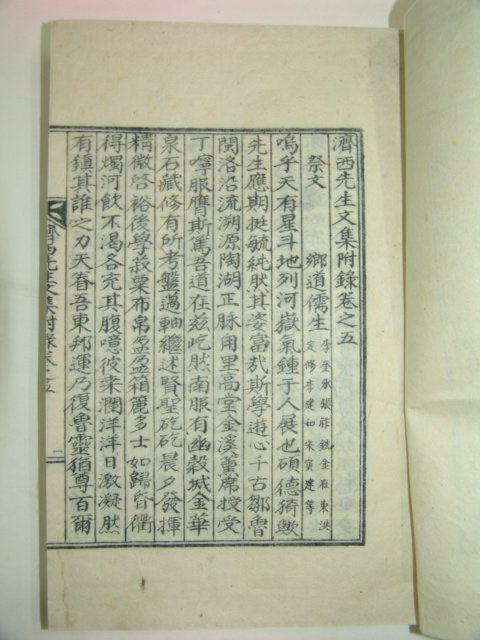 濟西先生文集附錄卷之五
祭文
鄕道儒生
嗚乎天有星斗地列河嶽氣鍾于人展也碩德猗歟
先生應期挺毓純肰其姿富㢤斯學遊心千古鄒魯
閩洛沿流溯源陶湖正脉用里高堂金溪董席授受
丁寧服膺斯篤吾道在玆屹然南服有幽穀城金華
泉石藏修有所考盤薖軸繼述賢聖矻矻晨夕發揮
精微啓裕後學菽粟布帛盈盈箱簏多士如歸昏衢
得燭河飮不渴各充其腹噫彼柰瀾洋洋日激凝然
有鎭其誰之力天眷吾東邦運乃復魯靈猶尊百爾
濟西先生文集附錄卷之五
二